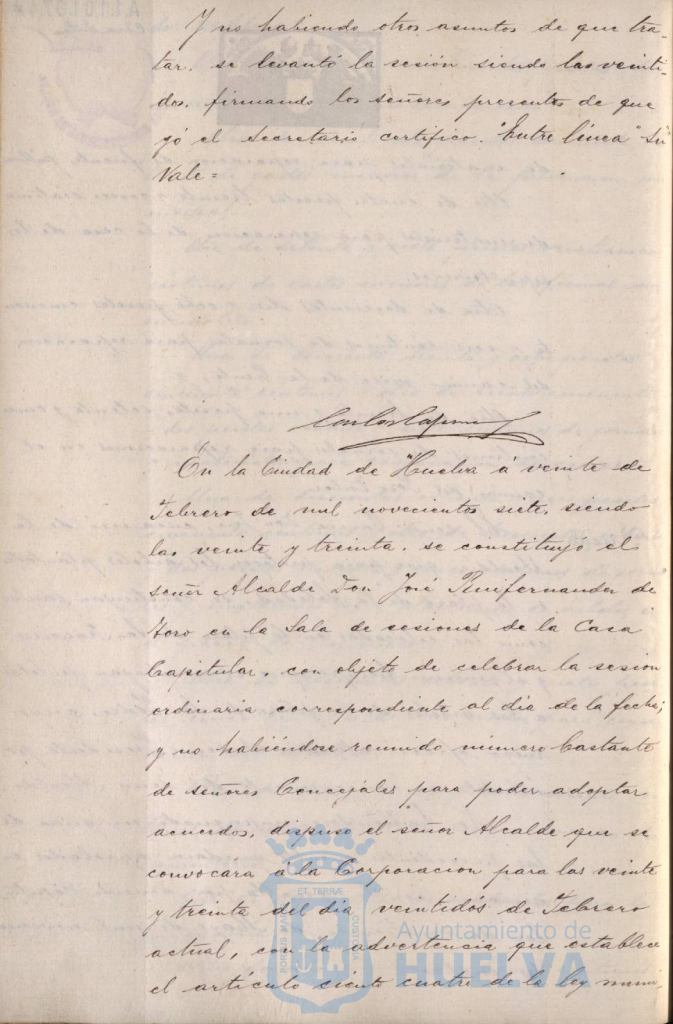 Y no habiendo otros asuntos de que tra-
tar, se levantó la sesión siendo las veinti-
dos, firmando los señores presentes de que
yó el Secretario certifico. "Entre línea"
Vale =
Carlos
En la Ciudad de Huelva á veinte de
Febrero de mil novecientos siete, siendo
las veinte y treinta, se constituyó el
señor Alcalde Don José Ruifernandez de
Toro en la Sala de sesiones de la Casa
Capitular, con objeto de celebrar la sesion
ordinaria correspondiente al dia de la fecha;
y no habiéndose reunido número bastante
de señores Concejales para poder adoptar
acuerdos, dispuso el señor Alcalde que se
convocára á la Corporacion para las veinte
y treinta del dia veintidós de Febrero
actual, con la advertencia que establece
el artículo ciento cuatro de la ley muni-
PORTUS MARIS ET TERRÆ CUSTODIA
Ayuntamiento de
HUELVA